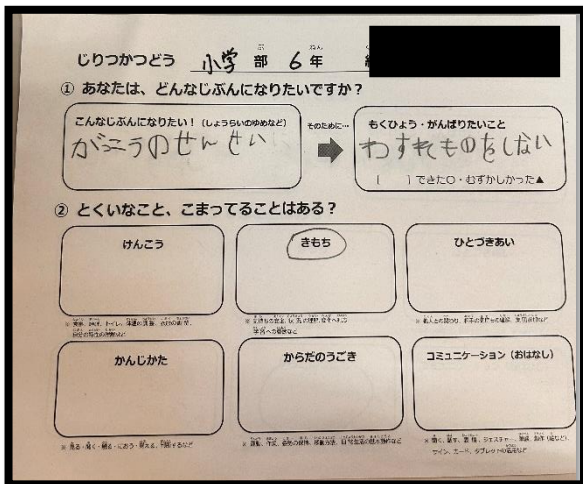 じりつかつどう 小学部 6年
① あなたは、どんなじぶんになりたいですか?
こんなじぶんになりたい!(しょうらいのゆめなど)
がっこうのせんせい
そのために…
もくひょう・がんばりたいこと
わすれものをしない
( )できた○・むずかしかった▲
② とくいなこと、こまってることはある?
けんこう
きもち
ひとづきあい
かんじかた
からだのうごき
コミュニケーション(おはなし)
※ 見る・聞く・触る・におう・覚える、判断するなど
サイン、カード、タブレットの活用など